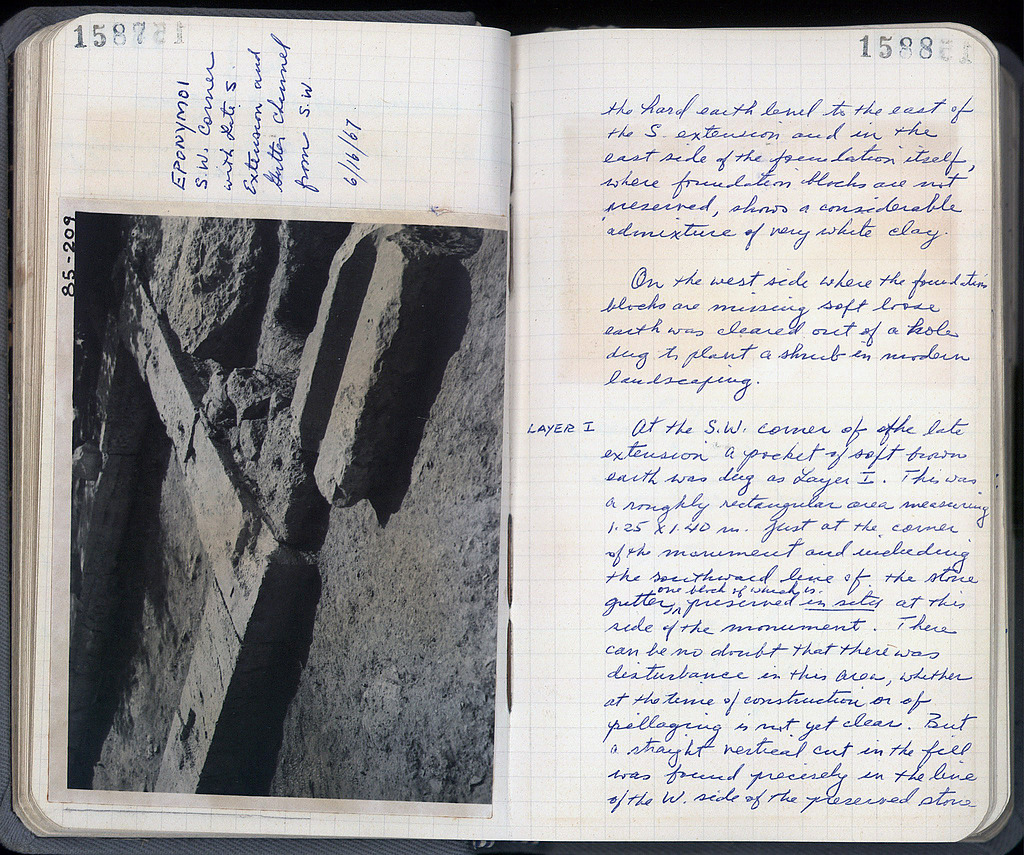 158751
EPONYMOI
S.W. Corner
with late S.
Extension and
Gutter channel
from S.W.
6/16/67
85-209
1588
the hard earth level to the east of
the S. extension and in the
east side of the foundation itself,
where foundation blocks are not
preserved, shows a considerable
admixture of very white clay.
On the west side where the foundation
blocks are missing soft loose
earth was cleared out of a hole
dug to plant a shrub in modern
landscaping.
LAYER I At the S.W. corner of the late
extension a pocket of soft brown
earth was dug as Layer I. This was
a roughly rectangular area measuring
1.25 x 1.40 m. just at the corner
of the monument and including
the southward line of the stone
one block of which is
gutter, preserved in situ at this
side of the monument. There
can be no doubt that there was
disturbance in this area, whether
at the time of construction or of
pillaging is not yet clear. But
a straight vertical cut in the fill
was found precisely in the line
of the W. side of the preserved stone